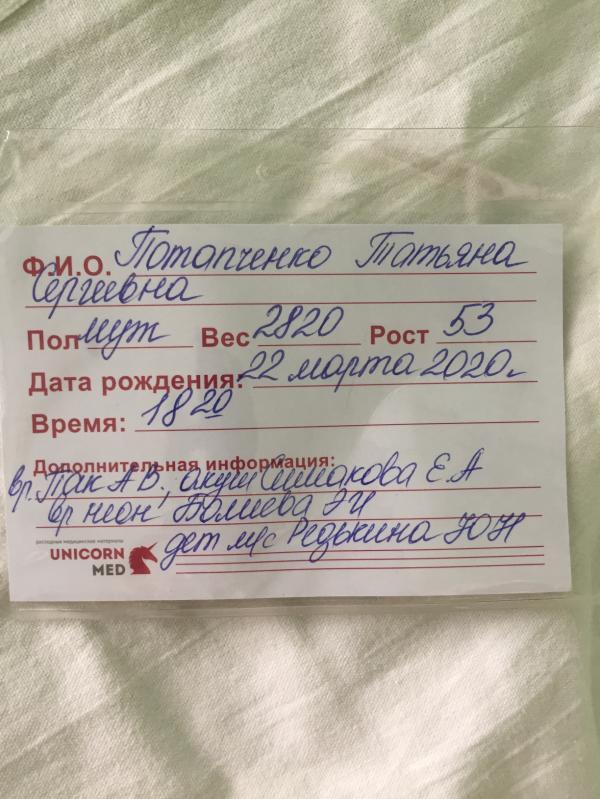 Ф.И.О. Потапченко Татьяна
Сергеевна
Пол муж Вес 2820 Рост 53
Дата рождения: 22 марта 2020г
Время: 18 20
Дополнительная информация:
вр. Пак А В, акуш Симакова Е. А
вр неон Болиева Э И
расходные медицинские материалы
UNICORN
MED
дет м/с Редькина Ю Н